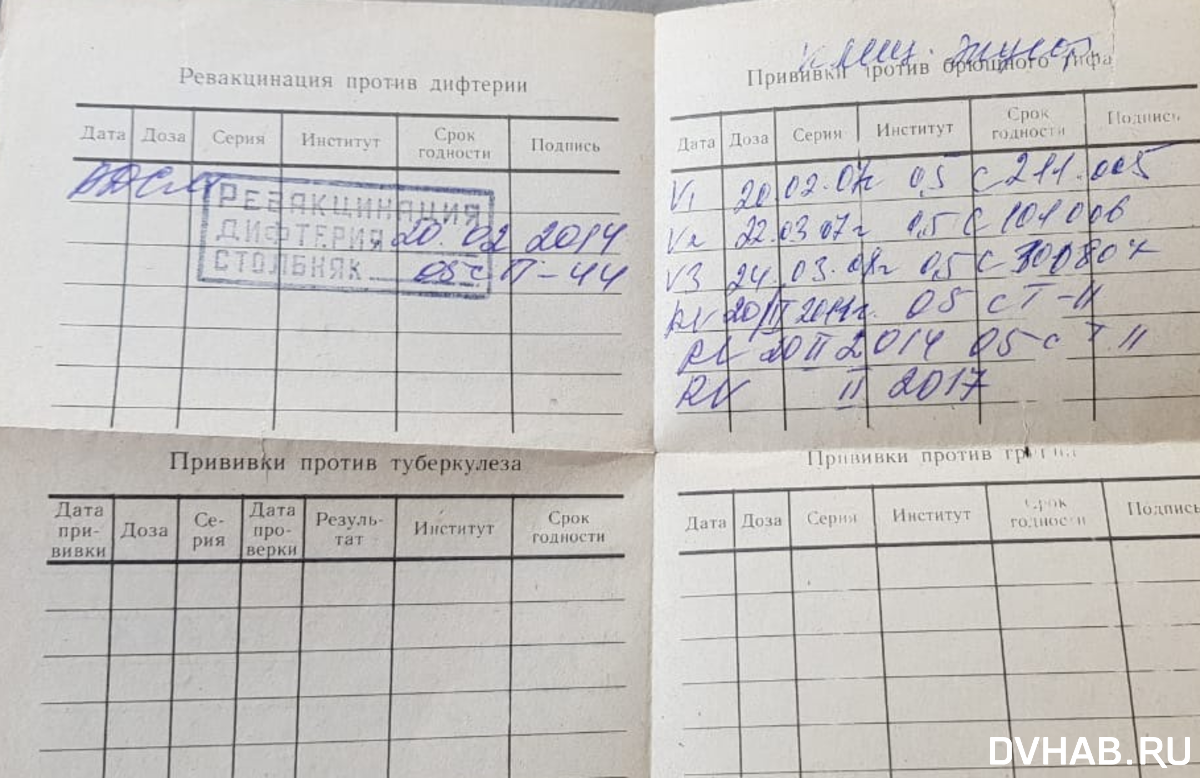 Ревакцинация против дифтерии
Дата Доза Серия Институт Срок годности Подпись
АДСМ
РЕВАКЦИНАЦИЯ
ДИФТЕРИЯ 20.02 2014
СТОЛБНЯК 05 с П-44
клещ. энцеф
Прививки против брюшного тифа
Дата Доза Серия Институт Срок годности Подпись
V1 20.02.07г 0,5 с 211.005
V2 22.03 07г 0,5 с 101006
V3 24.03.08г 0,5 с
RV 20/II 2011г. 05 с Т-11
RV 20 II 2014 05 с Т.11
RV II 2017
Прививки против туберкулеза
Дата при-вивки Доза Се-рия Дата про-верки Резуль-тат Институт Срок годности
Прививки против гриппа
Дата Доза Серия Институт Срок годности Подпись
DVHAB.RU